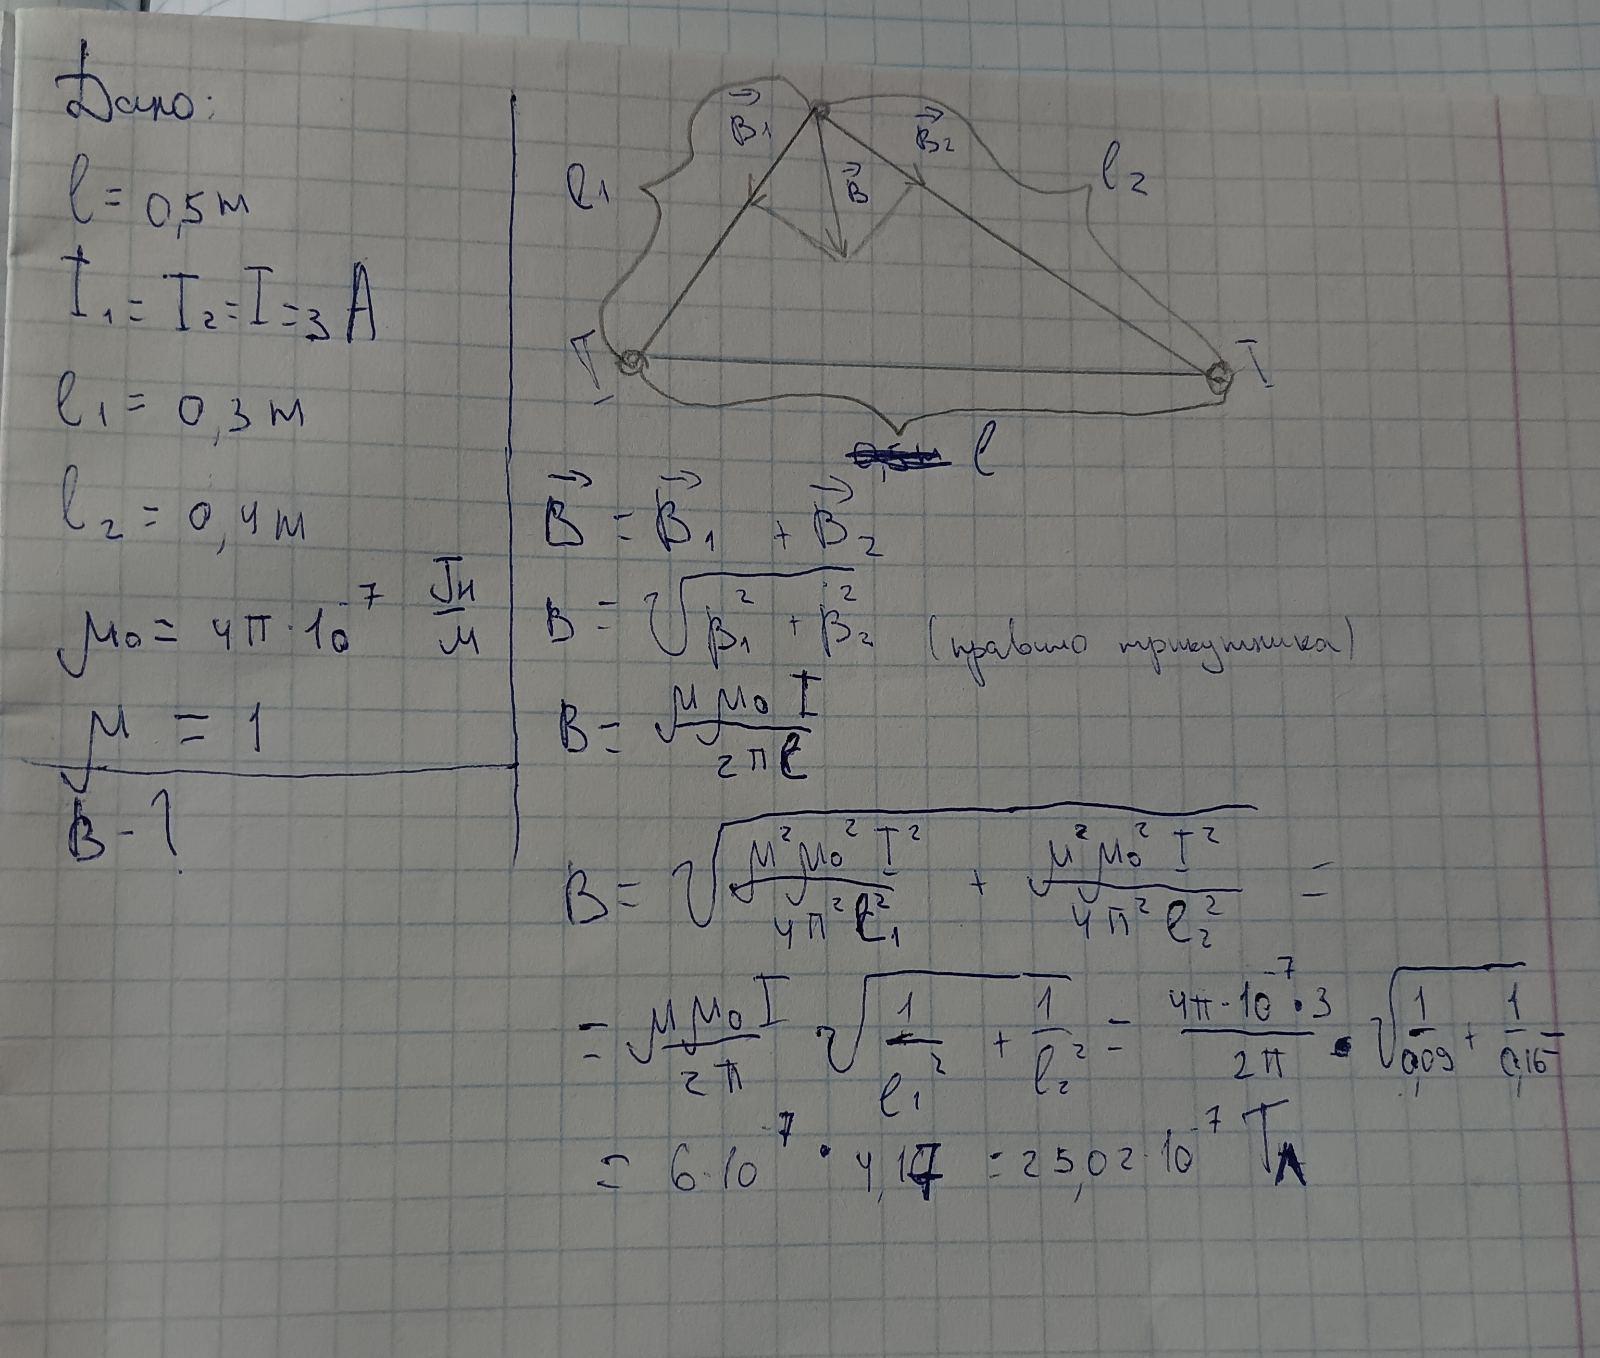 Дано:
l = 0,5 м
I₁ = I₂ = I = 3 A
l₁ = 0,3 м
l₂ = 0,4 м
μ₀ = 4π·10⁻⁷ Гн/м
μ = 1
B - ?
B⃗₁ B⃗₂
l₁ B⃗ l₂
I I
l
B⃗ = B⃗₁ + B⃗₂
B = √(B₁² + B₂²) (правило трикутника)
B = μμ₀I/2πl
B = √(μ²μ₀²I²/4π²l₁² + μ²μ₀²I²/4π²l₂²) =
= μμ₀I/2π √(1/l₁² + 1/l₂²) = 4π·10⁻⁷·3/2π · √(1/0,09 + 1/0,16)
= 6·10⁻⁷ · 4,17 = 25,02·10⁻⁷ Тл